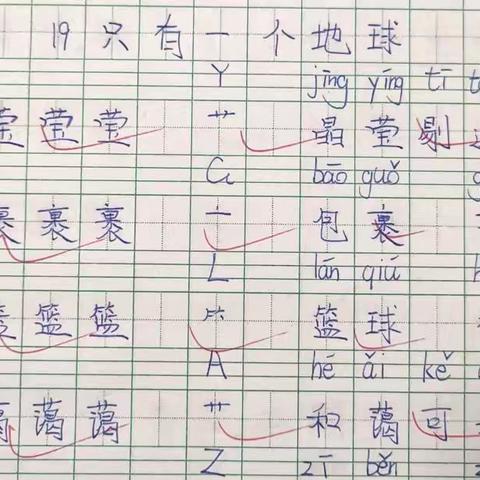 19 只有一个地球
Y jīng yíng tī
莹 莹 莹 艹 晶 莹 剔
G bāo guǒ
裹 裹 裹 亠 包 裹
L lán qiú
篮 篮 ⺮ 篮 球
A hé ǎi kě
蔼 蔼 艹 和 蔼 可
Z zī běn